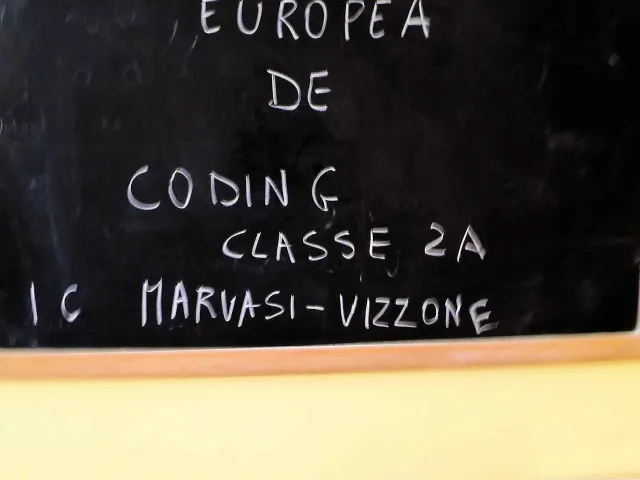 EUROPEA
DE
CODING
CLASSE 2A
IC MARVASI-VIZZONE